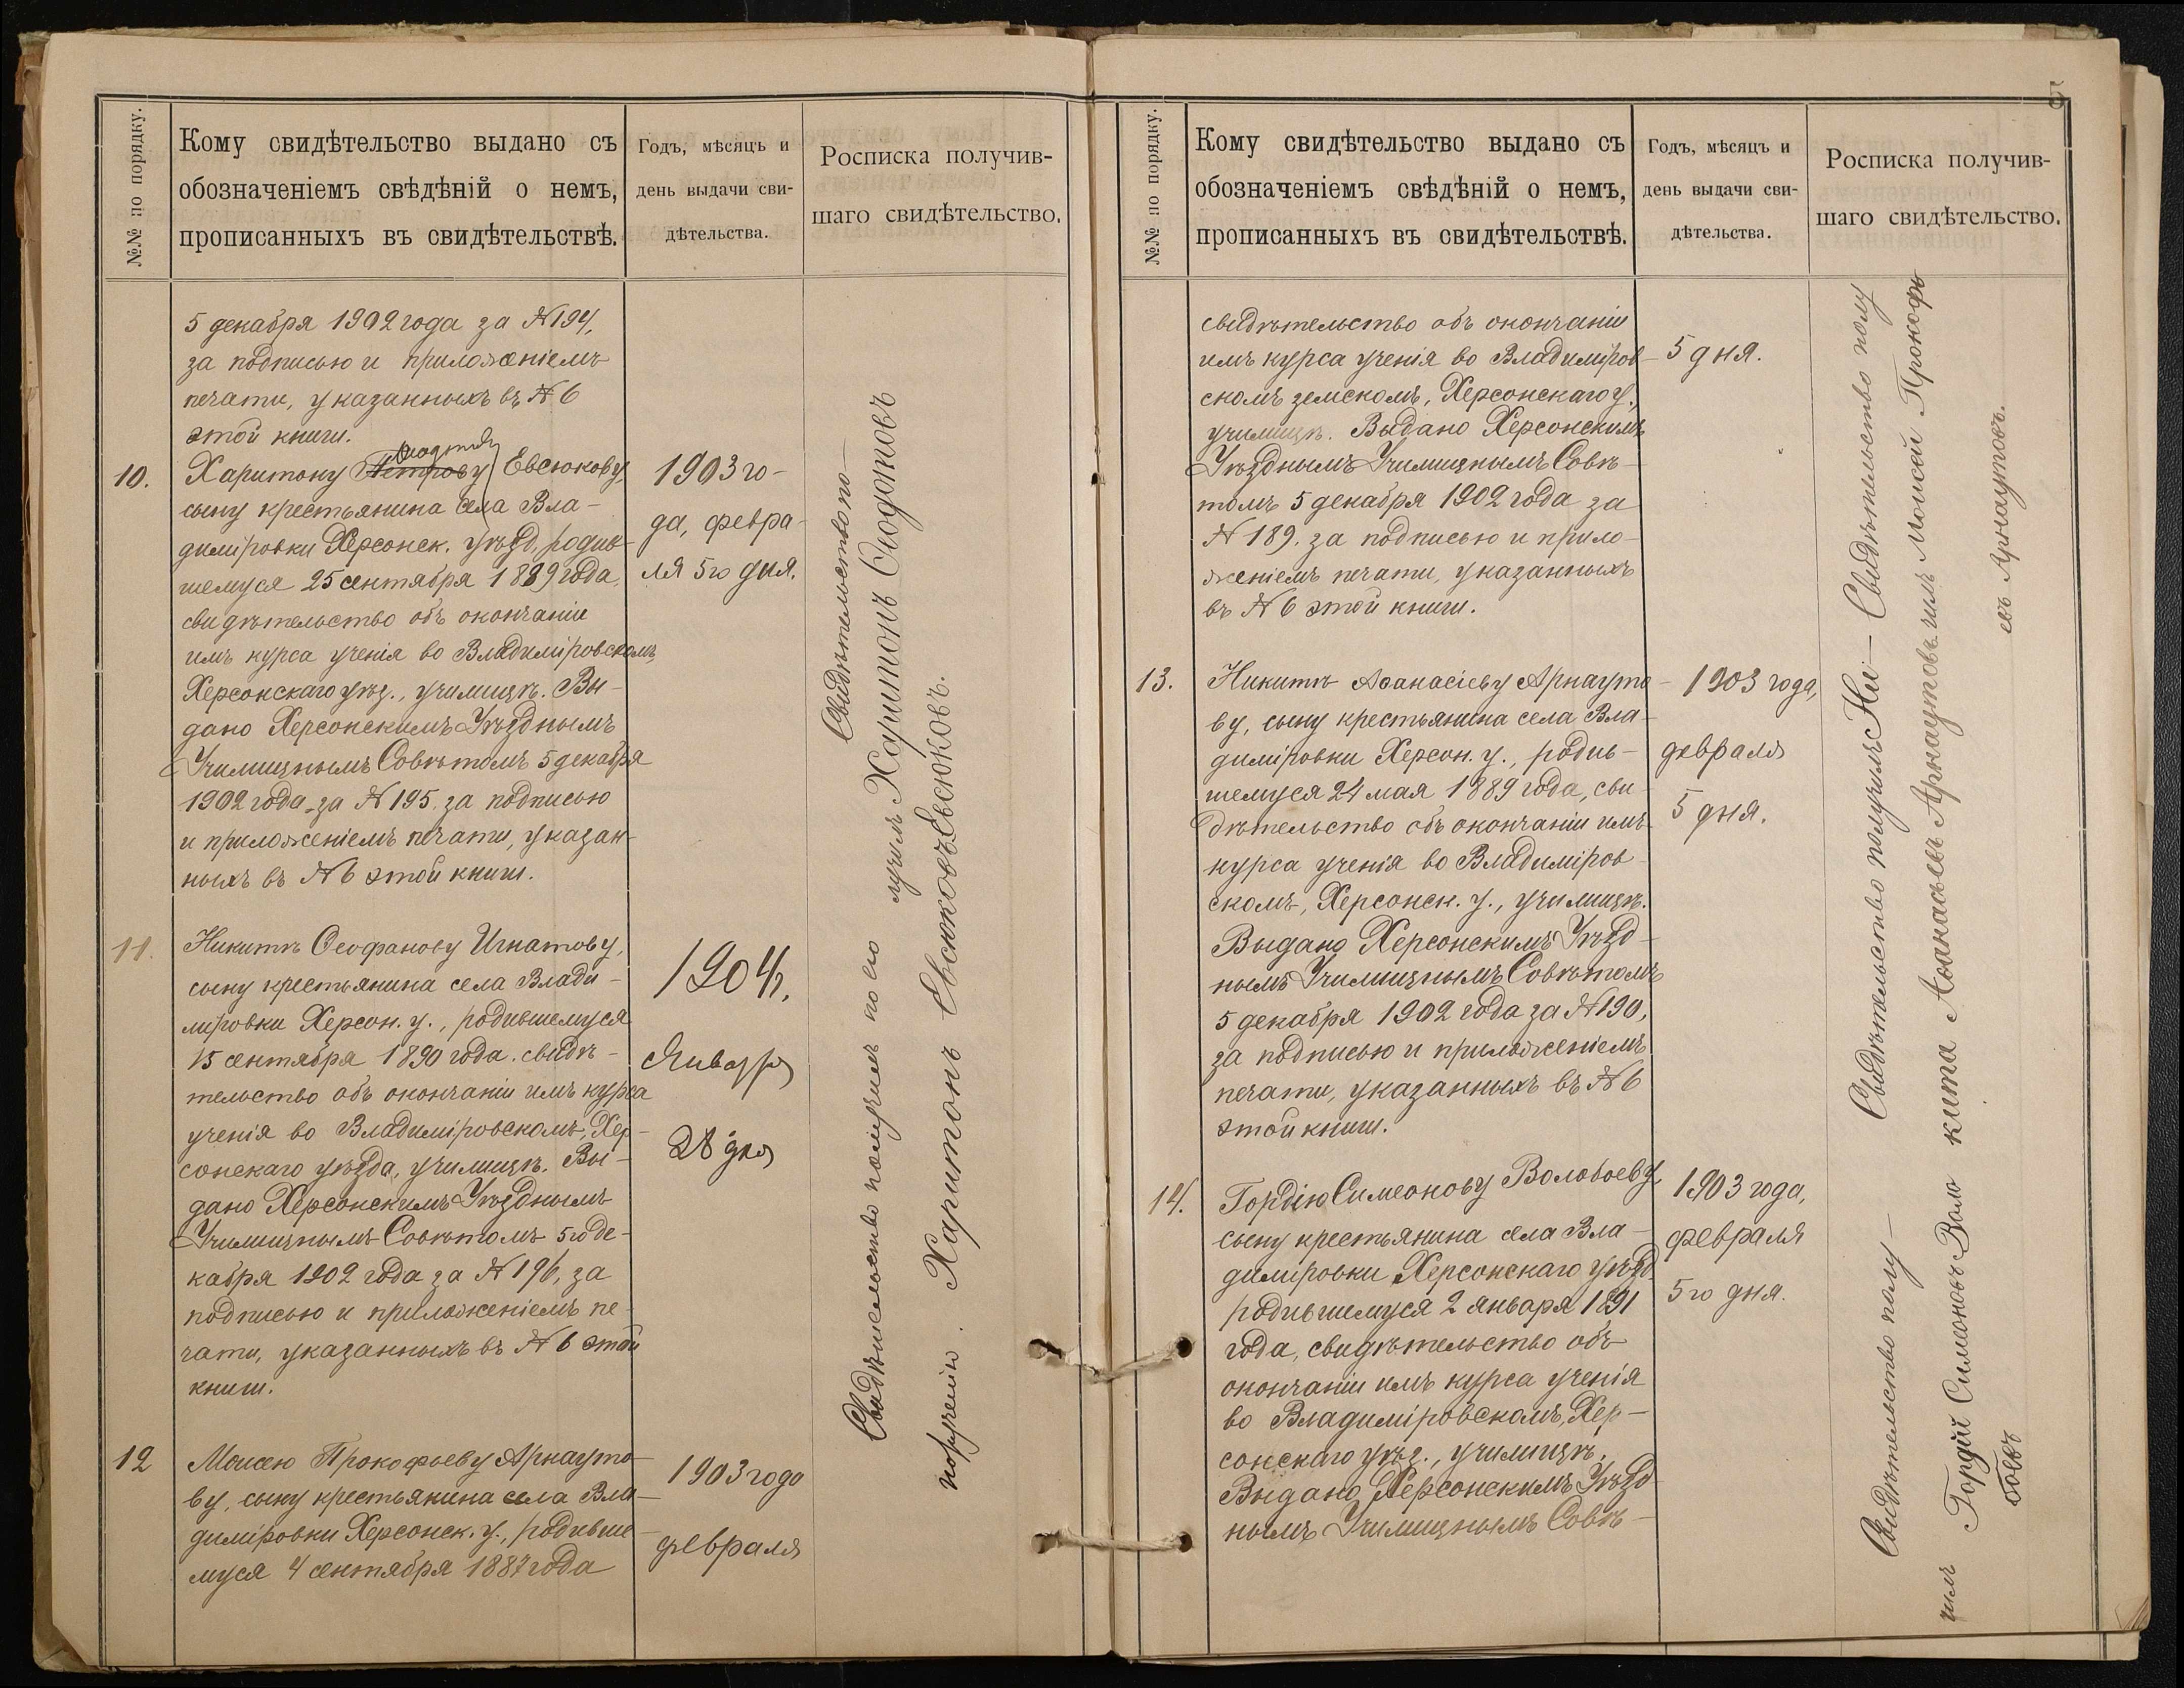 №№ по порядку.
Кому свидѣтельство выдано съ
обозначеніемъ свѣдѣній о немъ,
прописанныхъ въ свидѣтельствѣ.
Годъ, мѣсяцъ и
день выдачи сви-
дѣтельства.
Росписка получив-
шаго свидѣтельство.
5 декабря 1902 года за №194,
за подписью и приложеніемъ
печати, указанныхъ въ №6
этой книги.
10.
Харитону Петрову Евсюкову,
сыну крестьянина села Вла-
диміровки Херсонск. уѣзд, родив-
шемуся 25 сентября 1889 года,
свидѣтельство объ окончаніи
имъ курса ученія во Владиміровскомъ,
Херсонскаго уѣз., училищѣ. Вы-
дано Херсонскимъ Уѣзднымъ
Училищнымъ Совѣтомъ 5 декабря
1902 года за №195, за подписью
и приложеніемъ печати, указан-
ныхъ въ №6 этой книги.
1903 го-
да, февра-
ля 5го дня.
Свидѣтельство по-
лучилъ Харитонъ Ѳеодотовъ
Евсюковъ.
11.
Никитѣ Ѳеофанову Игнатову,
сыну крестьянина села Влади-
міровки Херсон. у., родившемуся
15 сентября 1890 года. свидѣ-
тельство объ окончаніи имъ курса
ученія во Владиміровскомъ, Хер-
сонскаго уѣзда, училищѣ. Вы-
дано Херсонскимъ Уѣзднымъ
Училищнымъ Совѣтомъ 5го де-
кабря 1902 года за №196, за
подписью и приложеніемъ пе-
чати, указанныхъ въ №6 этой
книги.
1904 г.
Января
28 дня
Свидѣтельство получилъ по его
порученію. Харитонъ Евсюковъ
12
Моисею Прокофьеву Арнауто-
ву, сыну крестьянина села Вла-
диміровки Херсонск. у., родивше-
муся 4 сентября 1887 года
1903 года
февраля
5
№№ по порядку.
Кому свидѣтельство выдано съ
обозначеніемъ свѣдѣній о немъ,
прописанныхъ въ свидѣтельствѣ.
Годъ, мѣсяцъ и
день выдачи сви-
дѣтельства.
Росписка получив-
шаго свидѣтельство.
свидѣтельство объ окончаніи
имъ курса ученія во Владиміров-
скомъ земскомъ, Херсонскаго у.,
училищѣ. Выдано Херсонскимъ
Уѣзднымъ Училищнымъ Совѣ-
томъ 5 декабря 1902 года за
№189. за подписью и прило-
женіемъ печати, указанныхъ
въ №6 этой книги.
5 дня.
Свидѣтельство полу
чилъ Моисей Прокофь
евъ Арнаутовъ.
13.
Никитѣ Аѳанасіеву Арнауто-
ву, сыну крестьянина села Вла-
диміровки Херсон. у., родив-
шемуся 24 мая 1889 года, сви-
дѣтельство объ окончаніи имъ
курса ученія во Владиміров-
скомъ, Херсонск. у., училищѣ.
Выдано Херсонскимъ Уѣзд-
нымъ Училищнымъ Совѣтомъ
5 декабря 1902 года за №190,
за подписью и приложеніемъ
печати, указанныхъ въ №6
этой книги.
1903 года,
февраля
5 дня.
Свидѣтельство получилъ Ни-
кита Аѳанасьевъ Арнаутовъ
14.
Гордію Симеонову Воловоеву,
сыну крестьянина села Вла-
диміровки Херсонскаго уѣзд.
родившемуся 2 января 1891
года, свидѣтельство объ
окончаніи имъ курса ученія
во Владиміровскомъ, Хер-
сонскаго уѣз., училищѣ.
Выдано Херсонскимъ Уѣзд-
нымъ Училищнымъ Совѣ-
1903 года,
февраля
5го дня.
Свидѣтельство полу-
чилъ Гордій Симоновъ Воло
боевъ